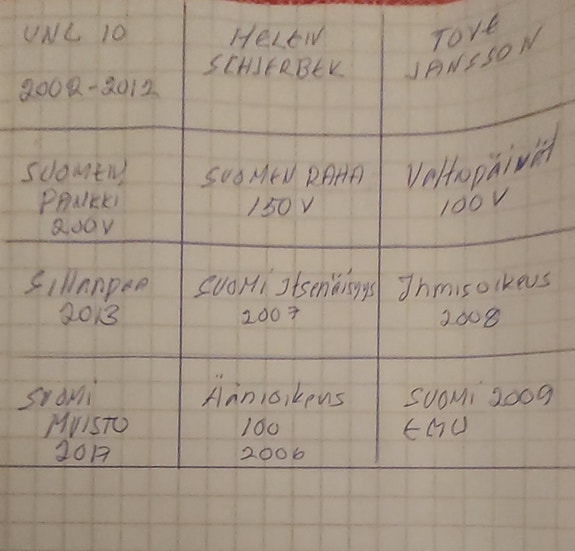 UNC 10
2002-2012
HELEN
SCHJERBEK
TOVE
JANSSON
SUOMEN
PANKKI
200V
SUOMEN RAHA
150 V
Valtiopäivät
100 V
Sillanpaa
2013
SUOMI Itsenäisyys
2007
Ihmisoikeus
2008
SUOMI
MUISTO
2017
Äänioikeus
100
2006
SUOMI 2009
EMU